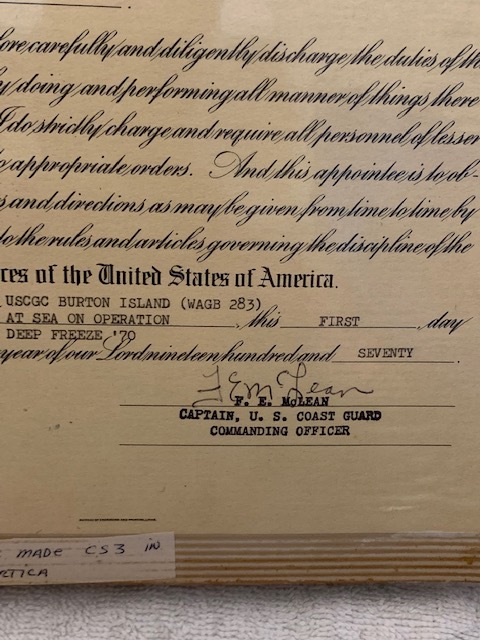 carefully and diligently discharge the duties of
doing and performing all manner of things there
I do strictly charge and require all personnel of lesser
appropriate orders. And this appointee is to ob-
and directions as may be given from time to time by
to the rules and articles governing the discipline of the
of the United States of America.
USCGC BURTON ISLAND (WAGB 283)
AT SEA ON OPERATION , this FIRST day
DEEP FREEZE '70
year of our Lord nineteen hundred and SEVENTY .
F E McLean
F. E. McLEAN
CAPTAIN, U. S. COAST GUARD
COMMANDING OFFICER
MADE CS3 IN